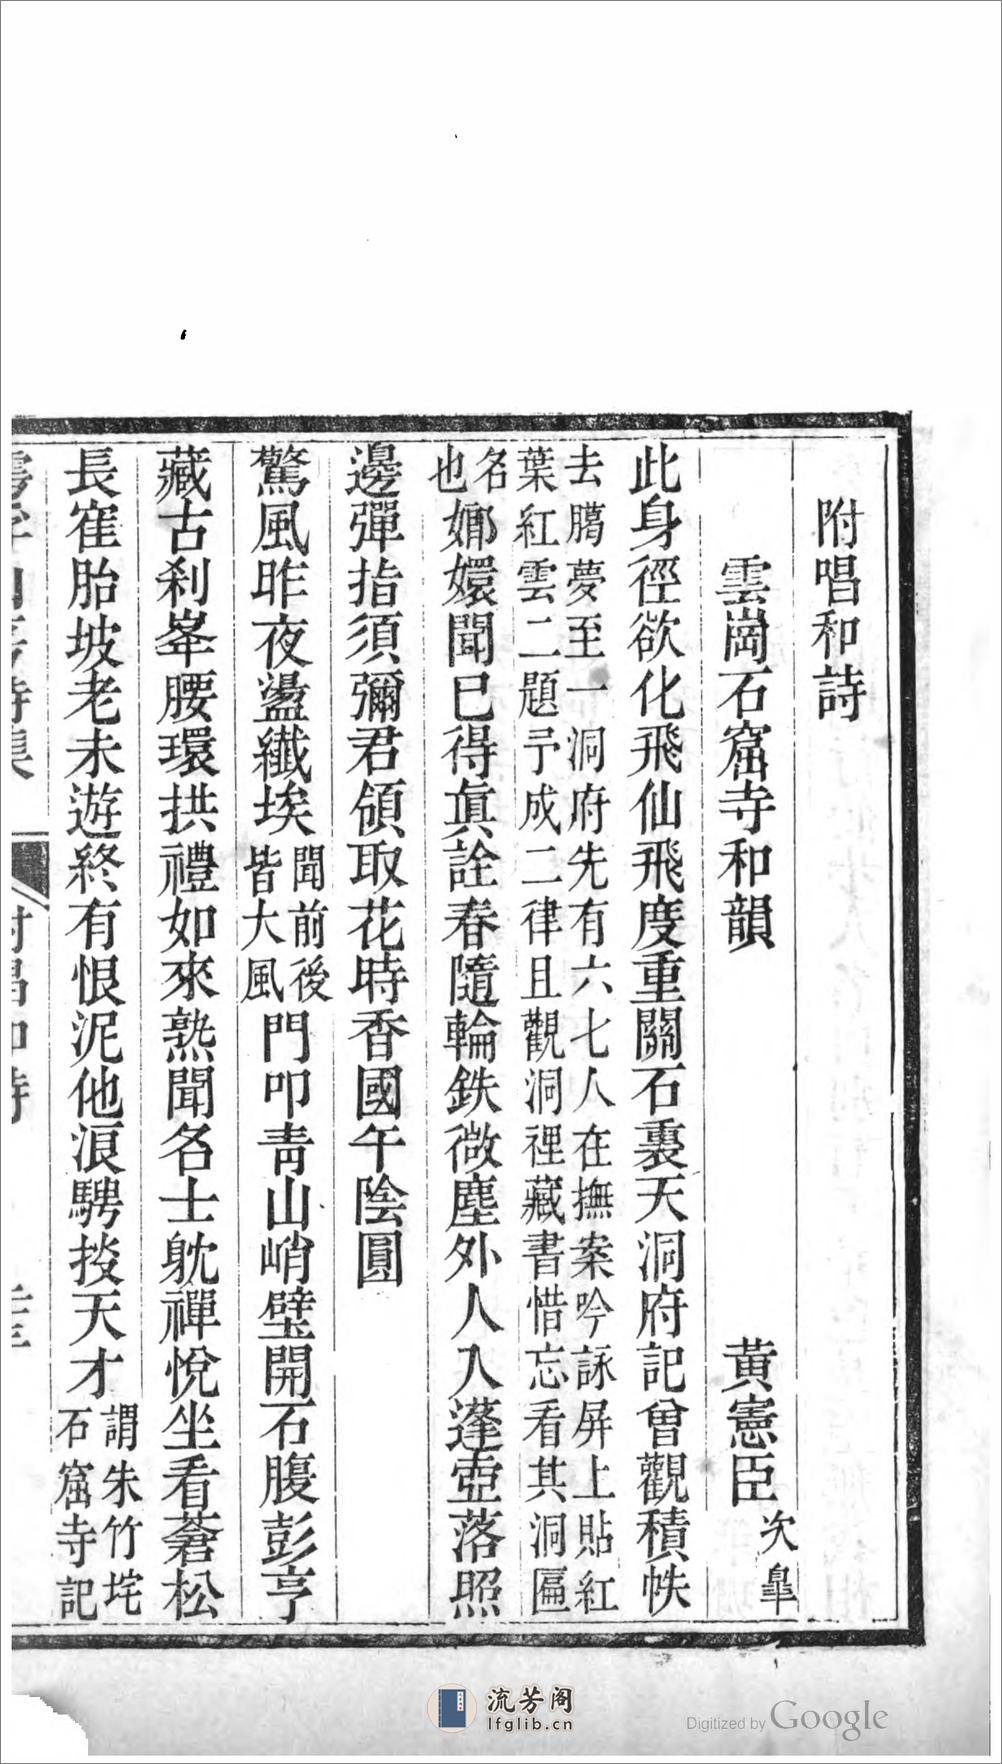 附唱和詩
雲崗石窟寺和韻　黃憲臣次臯
此身徑欲化飛仙飛度重關石裏天洞府記曾觀積帙
去臈夢至一洞府先有六七人在撫案吟詠屏上貼紅
葉紅雲二題予成二律且觀洞裡藏書惜忘看其洞匾
名
也
嫏嬛聞已得眞詮春隨輪鉄微塵外人入蓬壺落照
邊彈指須彌君領取花時香國午陰圓
驚風昨夜盪纖埃聞前後皆大風門叩青山峭壁開石腹彭亨
藏古刹峯腰環拱禮如來熟聞名士躭禪悅坐看蒼松
長寉胎坡老未遊終有恨泥他淚騁掞天才謂朱竹垞石窟寺記
流芳阁
lfglib.cn
Digitized by Google